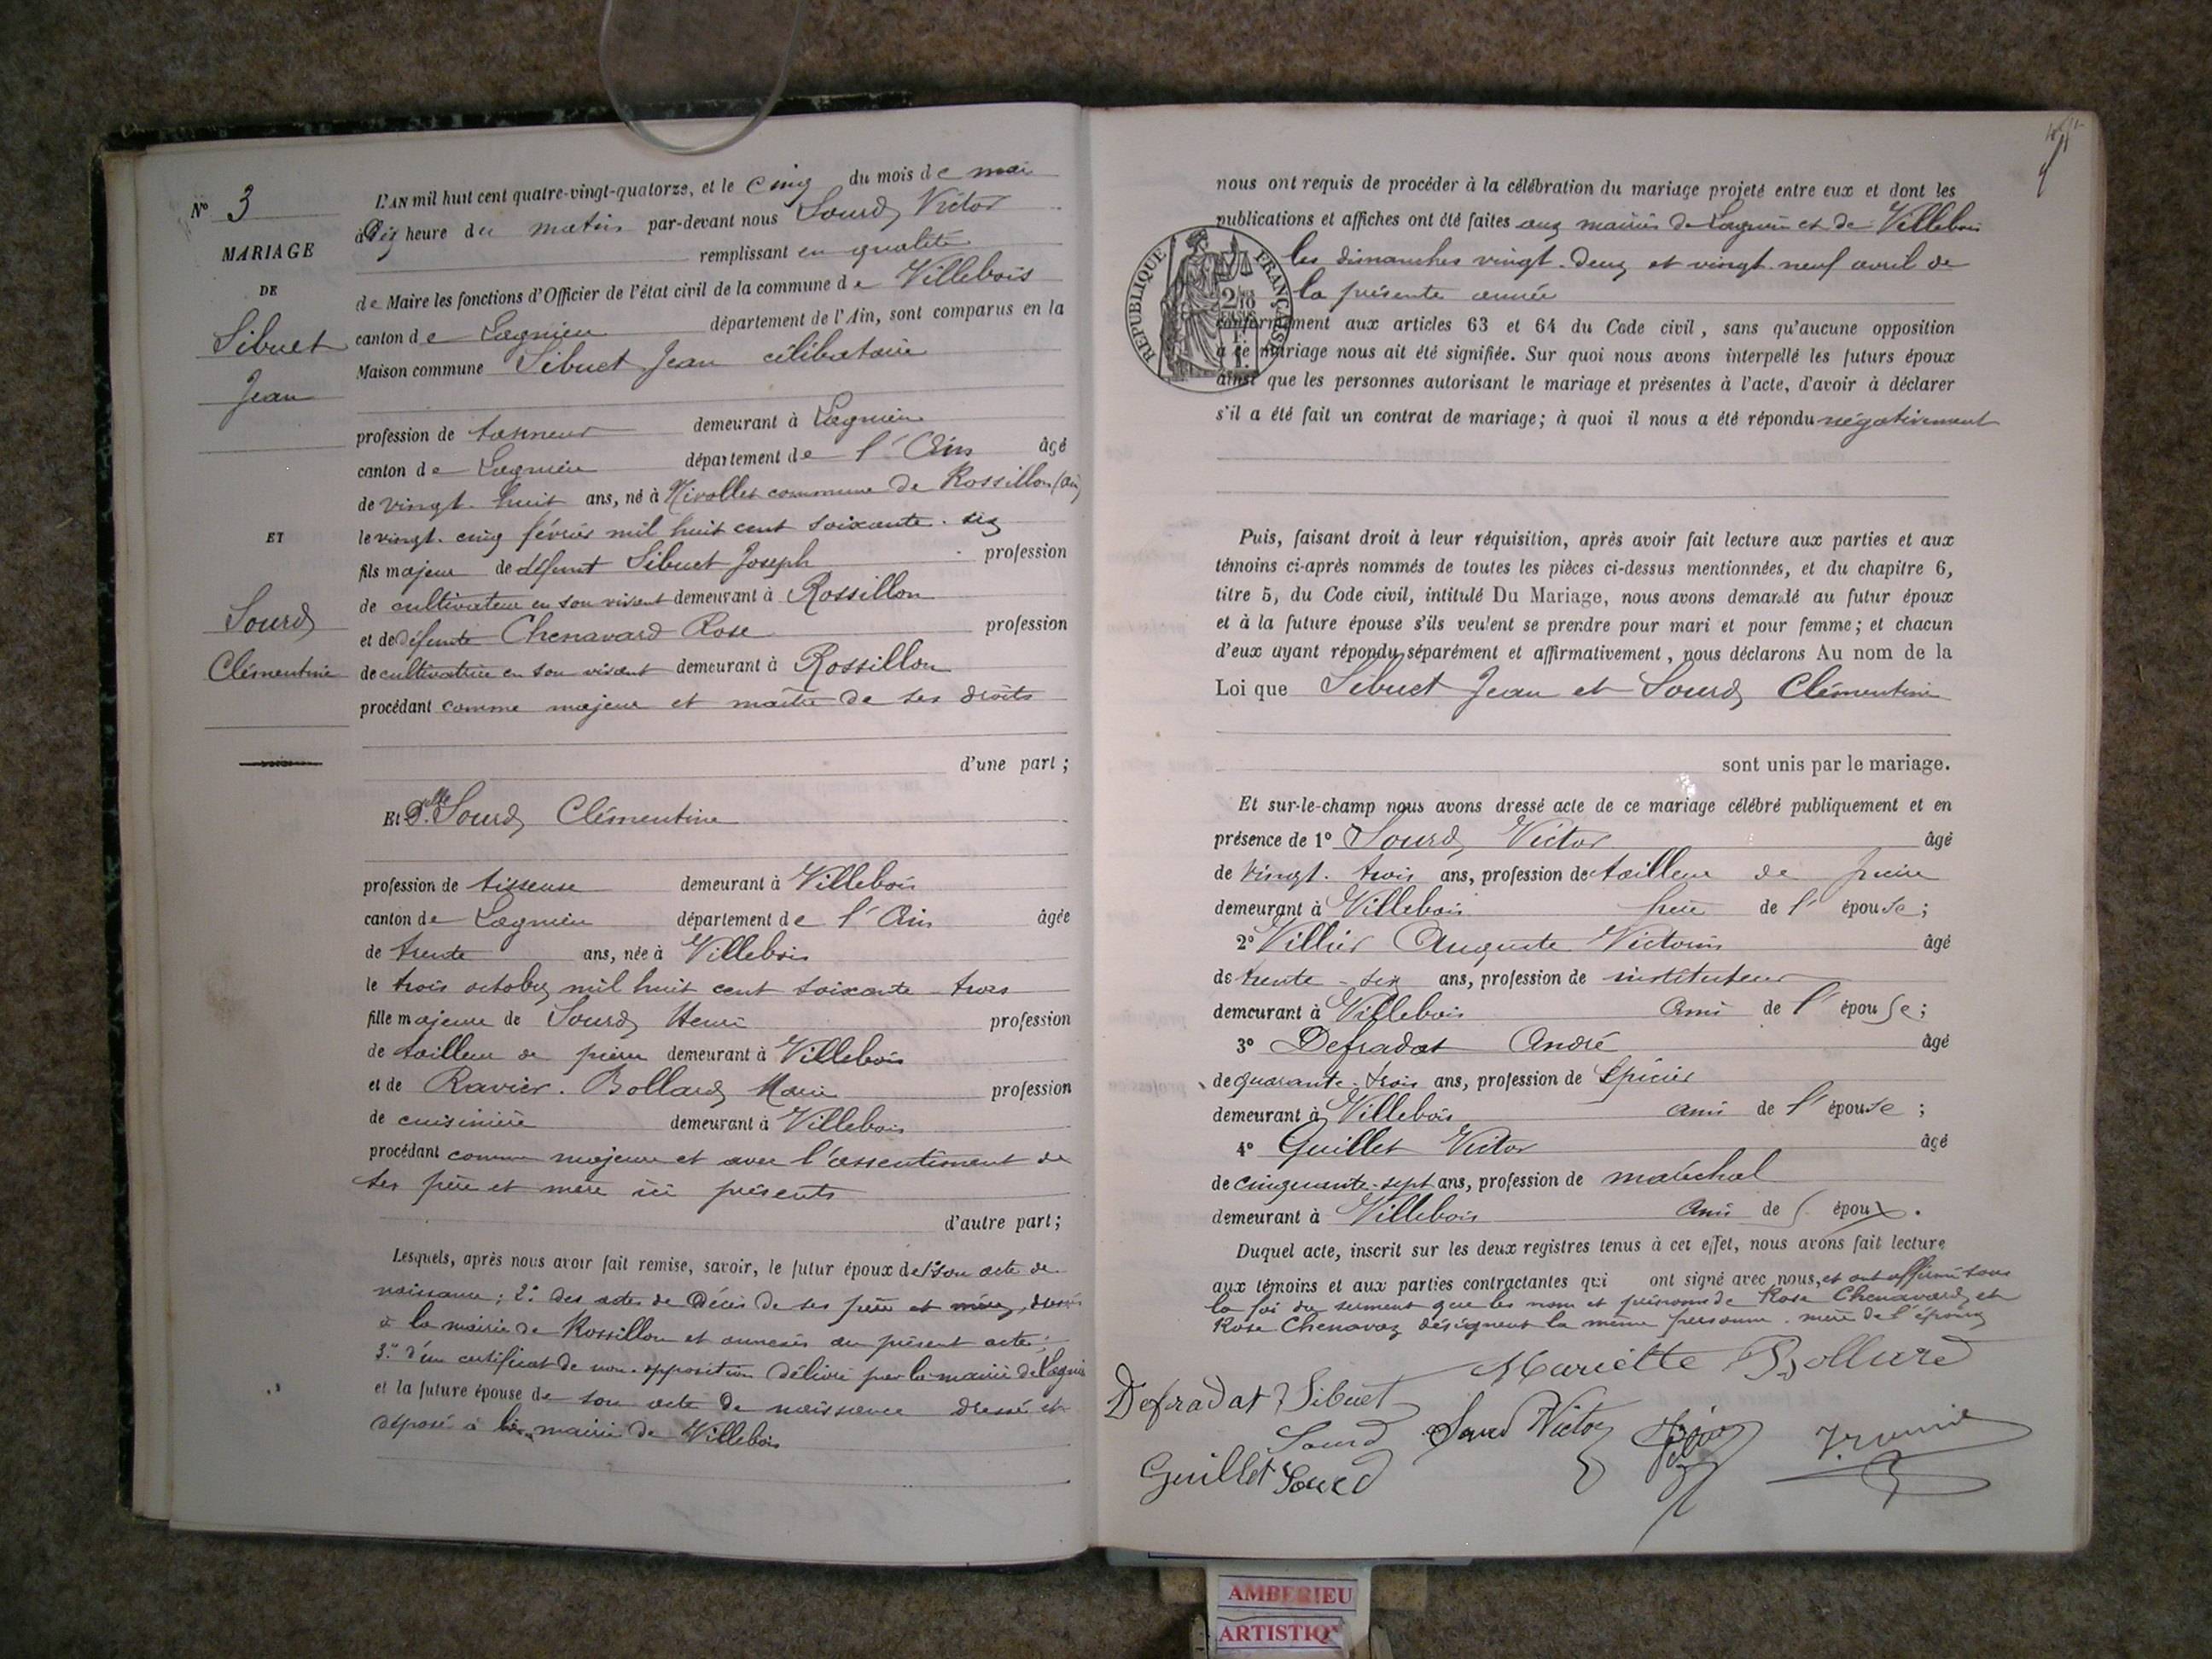 N° 3
MARIAGE
DE
Sibuet
Jean
ET
Sourd
Clémentine
L'AN mil huit cent quatre-vingt-quatorze, et le cinq du mois de mai
à Dix heure du matin par-devant nous Sourd Victor
remplissant en qualité
de Maire les fonctions d'Officier de l'état civil de la commune de Villebois
canton de Lagnieu département de l'Ain, sont comparus en la
Maison commune Sibuet Jean célibataire
profession de tanneur demeurant à Lagnieu
canton de Lagnieu département de l'Ain âgé
de vingt-huit ans, né à commune de Rossillon (Ain)
le vingt-cinq février mil huit cent soixante-six
fils majeur de défunt Sibuet Joseph profession
de cultivateur en son vivant demeurant à Rossillon
et de défunte Chenavard Rose profession
de cultivatrice en son vivant demeurant à Rossillon
procédant comme majeur et maître de ses droits
d'une part ;
Et Dlle Sourd Clémentine
profession de tisseuse demeurant à Villebois
canton de Lagnieu département de l'Ain âgée
de trente ans, née à Villebois
le trois octobre mil huit cent soixante-trois
fille majeure de Sourd Henri profession
de tailleur de pierre demeurant à Villebois
et de Ravier-Bollard Marie profession
de cuisinière demeurant à Villebois
procédant comme majeure et avec l'assentiment de
ses père et mère ici présents
d'autre part ;
Lesquels, après nous avoir fait remise, savoir, le futur époux de 1° son acte de
naissance ; 2° des actes de Décès de ses père et mère, dressés
à la mairie de Rossillon et annexés au présent acte ;
3° d'un certificat de non-opposition délivré par la mairie de Lagnieu
et la future épouse de son acte de naissance dressé et
déposé à la mairie de Villebois
nous ont requis de procéder à la célébration du mariage projeté entre eux et dont les
publications et affiches ont été faites aux mairies de Lagnieu et de Villebois
les dimanches vingt-deux et vingt-neuf avril de
la présente année
RÉPUBLIQUE FRANÇAISE
conformément aux articles 63 et 64 du Code civil, sans qu'aucune opposition
à ce mariage nous ait été signifiée. Sur quoi nous avons interpellé les futurs époux
ainsi que les personnes autorisant le mariage et présentes à l'acte, d'avoir à déclarer
s'il a été fait un contrat de mariage ; à quoi il nous a été répondu négativement
Puis, faisant droit à leur réquisition, après avoir fait lecture aux parties et aux
témoins ci-après nommés de toutes les pièces ci-dessus mentionnées, et du chapitre 6,
titre 5, du Code civil, intitulé Du Mariage, nous avons demandé au futur époux
et à la future épouse s'ils veulent se prendre pour mari et pour femme ; et chacun
d'eux ayant répondu séparément et affirmativement, nous déclarons Au nom de la
Loi que Sibuet Jean et Sourd Clémentine
sont unis par le mariage.
Et sur-le-champ nous avons dressé acte de ce mariage célébré publiquement et en
présence de 1° Sourd Victor âgé
de vingt-trois ans, profession de tailleur de pierre
demeurant à Villebois frère de l'épouse ;
2° Villier Auguste Victorin âgé
de trente-six ans, profession de instituteur
demeurant à Villebois ami de l'épouse ;
3° Defradat André âgé
de quarante-trois ans, profession de épicier
demeurant à Villebois ami de l'épouse ;
4° Guillet Victor âgé
de cinquante-sept ans, profession de maréchal
demeurant à Villebois ami de l époux.
Duquel acte, inscrit sur les deux registres tenus à cet effet, nous avons fait lecture
aux témoins et aux parties contractantes qui ont signé avec nous, et ont affirmé sous
la foi du serment que les nom et prénoms de Rose Chenavard et
Rose Chenavaz désignent la même personne, mère de l'époux
Mariette Bollard
Defradat Sibuet
Sourd Sourd Victor
Guillet Sourd
AMBERIEU
ARTISTIQ